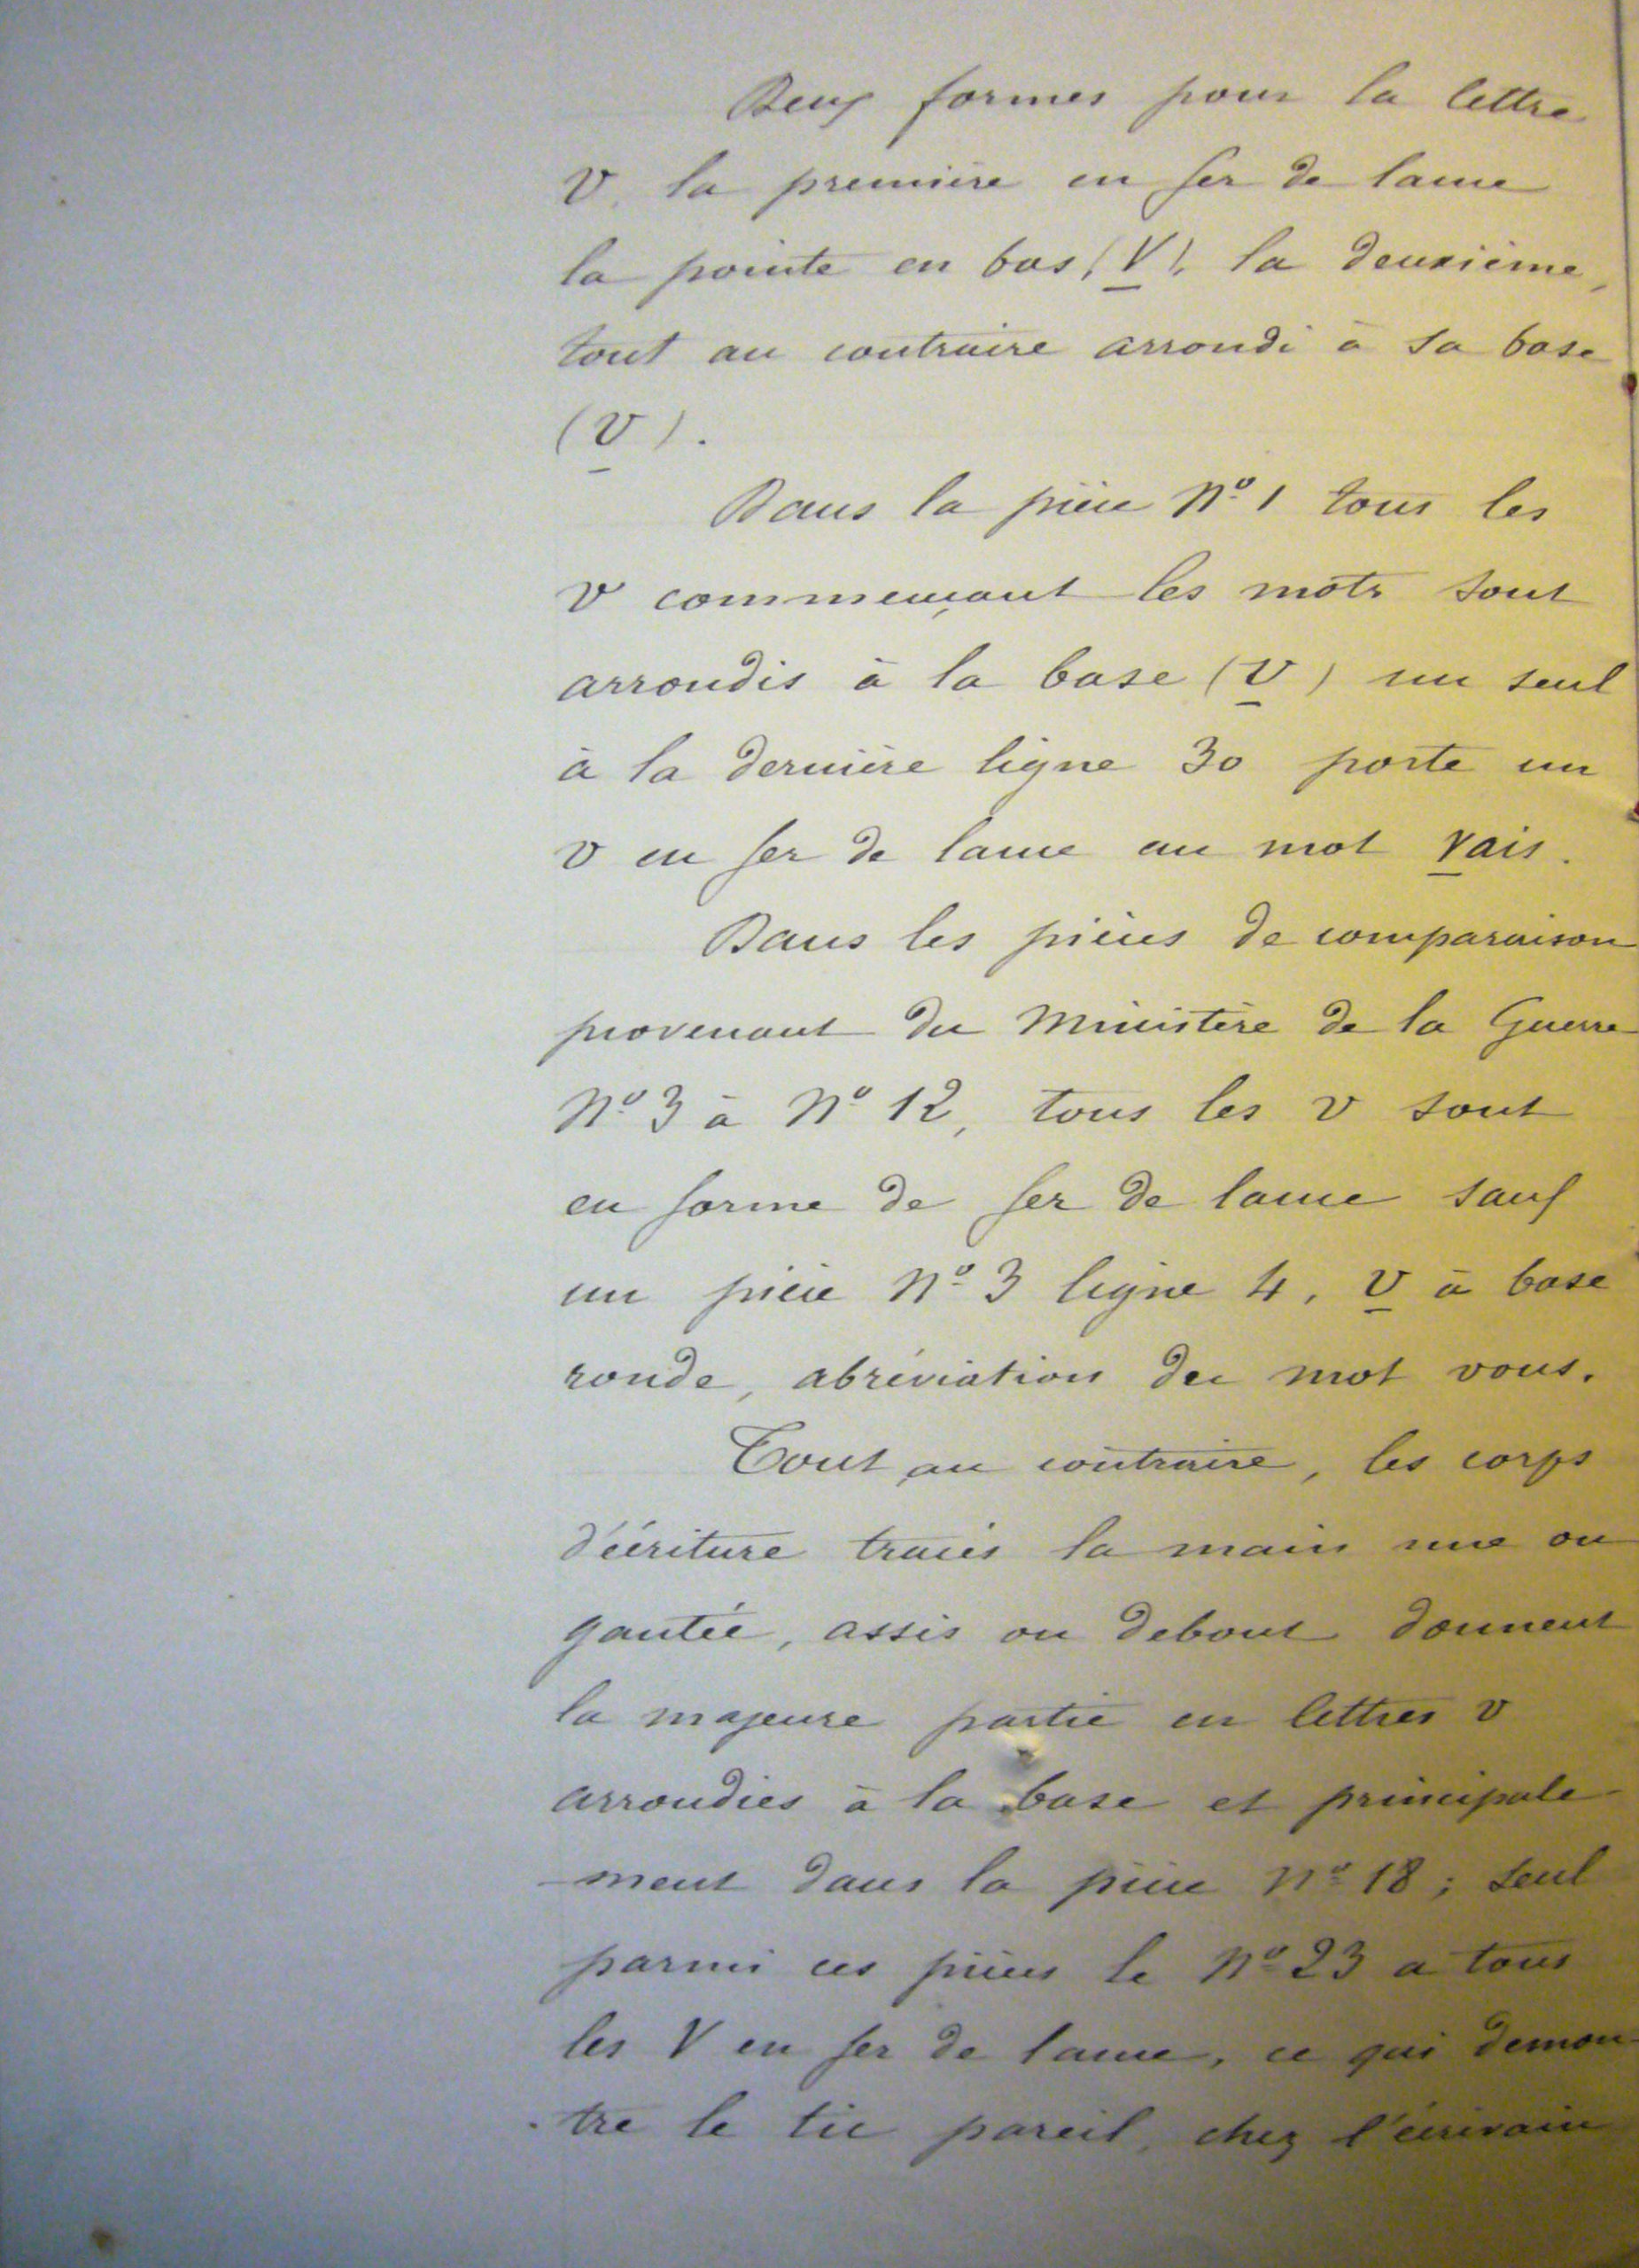 Deux formes pour la lettre
V. la première en fer de lance
la pointe en bas (V), la deuxième,
tout au contraire arrondi à sa base
(v).
Dans la pièce Nº 1 tous les
v commençant les mots sont
arrondis à la base (v) un seul
à la dernière ligne 30 porte un
v en fer de lance au mot vais.
Dans les pièces de comparaison
provenant du Ministère de la Guerre
Nº 3 à Nº 12, tous les v sont
en forme de fer de lance sauf
un pièce Nº 3 ligne 4, v à base
ronde, abréviation du mot vous.
Tout au contraire, les corps
d'écriture tracés la main nue ou
gantée, assis ou debout donnent
la majeure partie en lettres v
arrondies à la base et principale
-ment dans la pièce nº 18 ; seul
parmi ces pièces le Nº 23 a tous
les V en fer de lance, ce qui démon-
-tre le tic pareil, chez l'écrivain